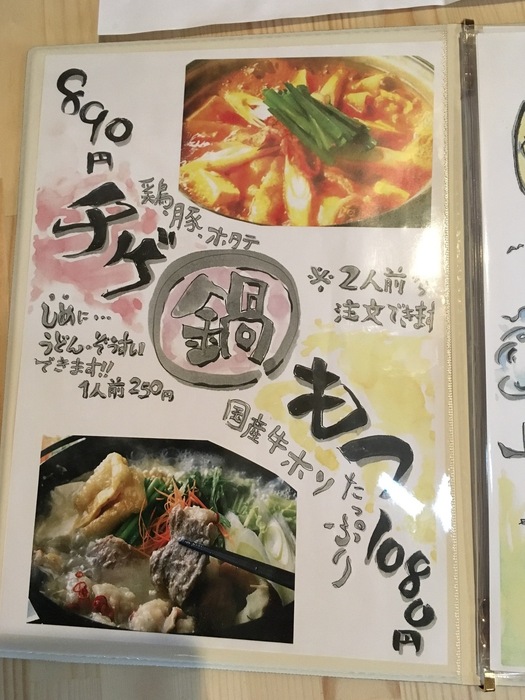 890円
チゲ
鶏、豚、ホタテ
鍋
※2人前
注文でき
しめに…
うどん・ぞうすい
できます!!
1人前250円
もつ
国産牛ホソ
たっぷり
1080円